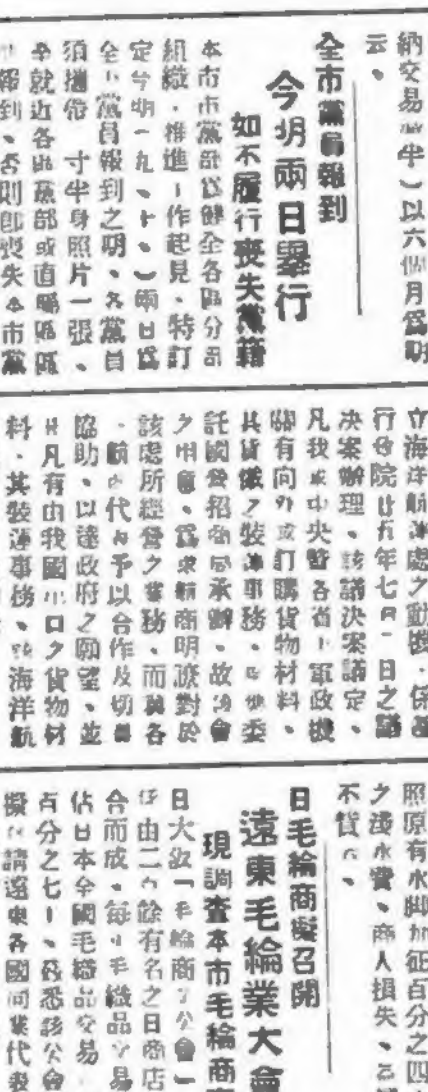 納交易 半）以六個月爲期
云、
全市黨員報到
今明兩日舉行
如不履行喪失黨籍
本市市黨部爲健全各區分部
組織、推進工作起見、特訂
定今明一九、十、）兩日爲
全市黨員報到之期、各黨員
須攜帶 寸半身照片一張、
就近各區黨部或直屬區
報到、否則卽喪失本市黨
立海洋航運處之動機、係
行政院廿五年七月 日之議
决案辦理、該議决案議定、
凡我 中央暨各省 軍政機
關有向外 訂購貨物材料、
其貨儎之裝運事務、 委
託國營招商局承辦、故
之 、爲求航商明瞭對於
該處所經營之業務、而冀各
航 代 予以合作及切
協助、以達政府之願望、並
凡有由我國出口之貨物材
料、其裝運事務、 海洋航
照原有水脚加征百分之四
之淺水費、商人損失、
不貲 、
日毛綸商擬召開
遠東毛綸業大會
現調查本市毛綸商
日大阪「毛綸商 公會」
由二 餘有名之日商店
合而成、每 毛織品交易
佔日本全國毛織品交易
百分之七 、 悉該公會
擬 請遠東各國同業代表